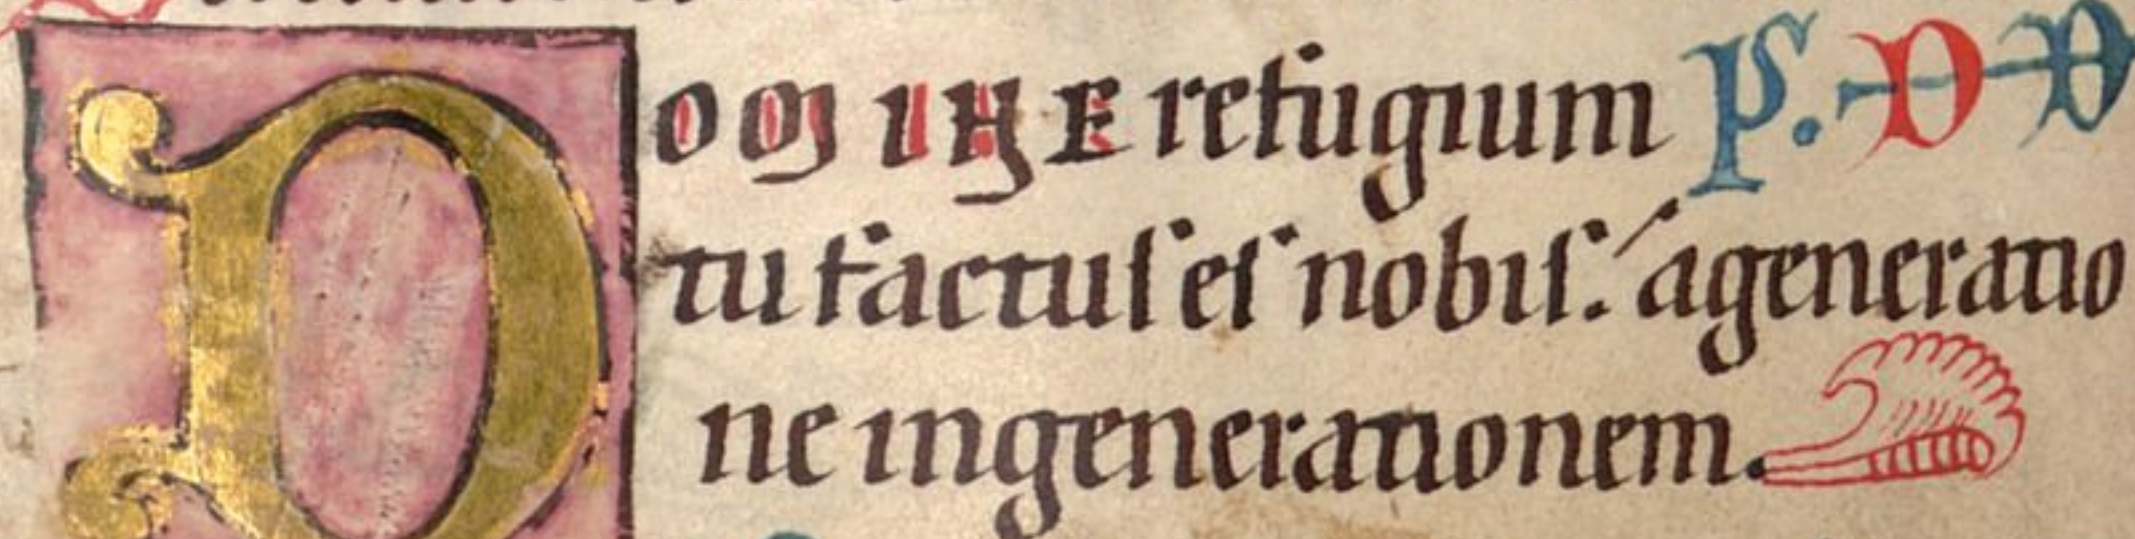 DOMINE refugium p̃s. D D
tu factuſ eſ nobiſ. a generatio
ne in generationem.